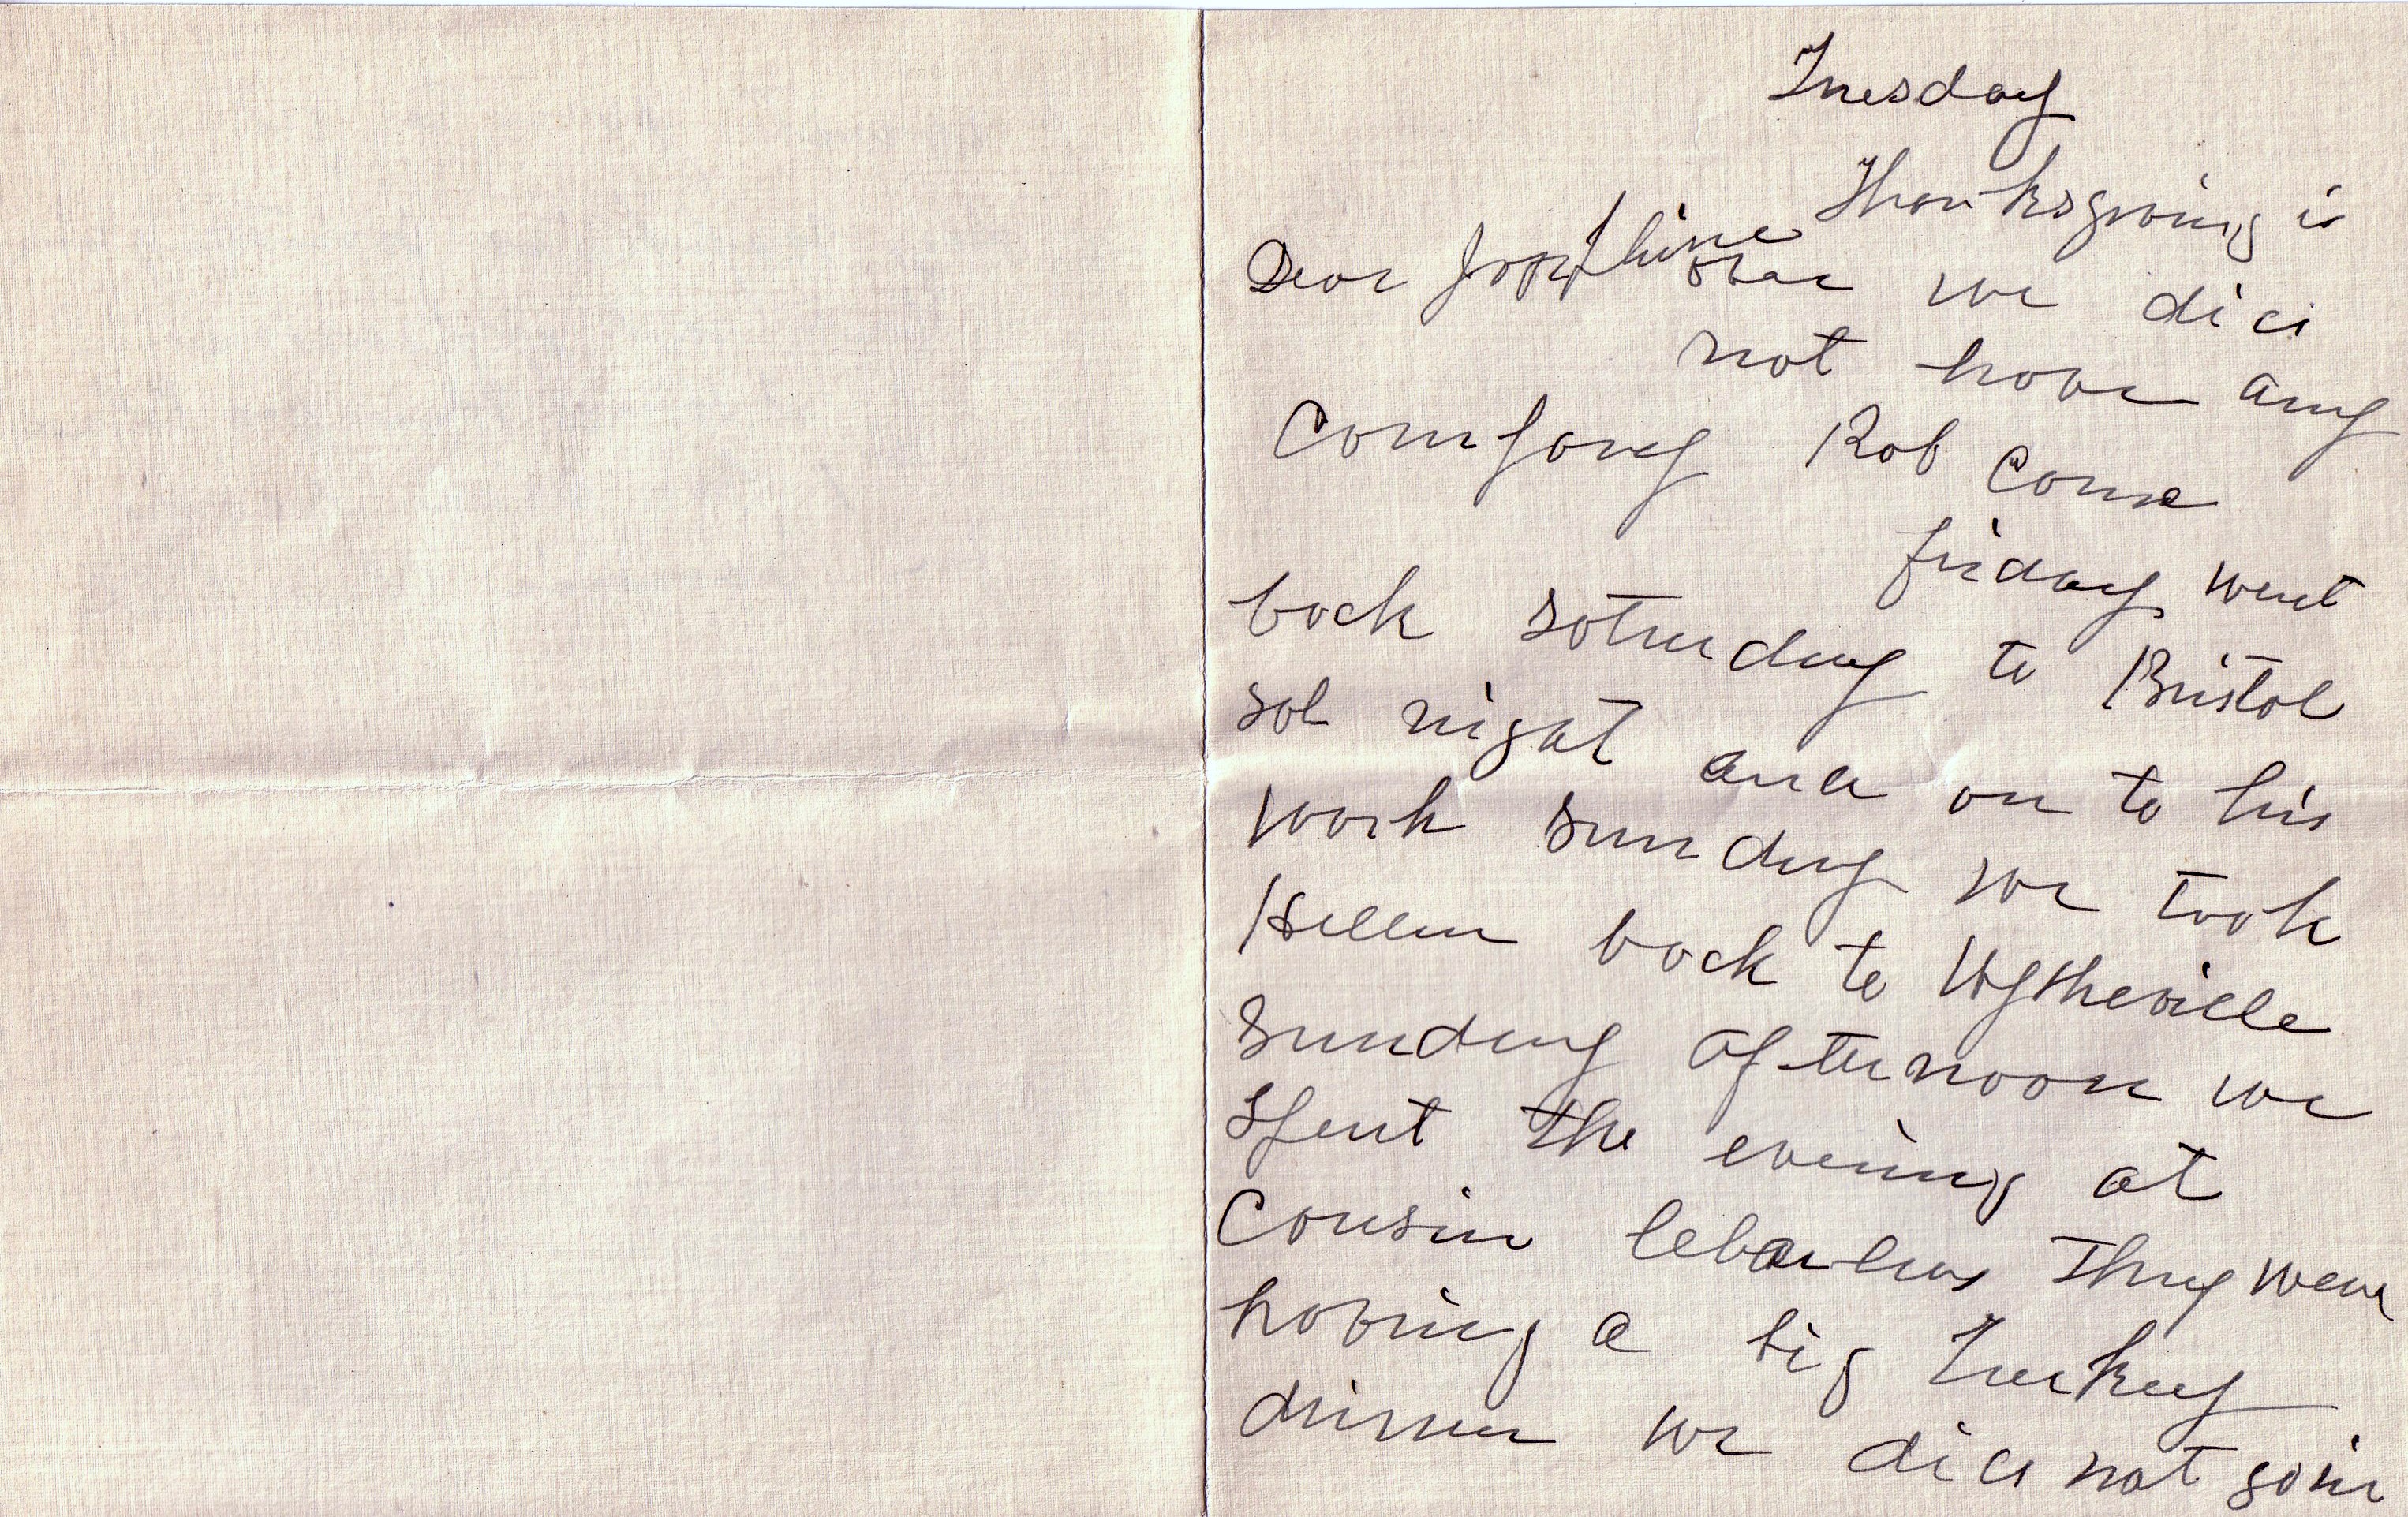 Tuesday
Thanksgiving is
Dear Josephine over we did
not have any
Company Rob Come
friday went
back Saturday to Bristol
sat night and on to his
work sunday we took
Hellen back to Wytheville
Sunday afternoon we
spent the evening at
Cousin They were
having a big Turkey
dinner we did not